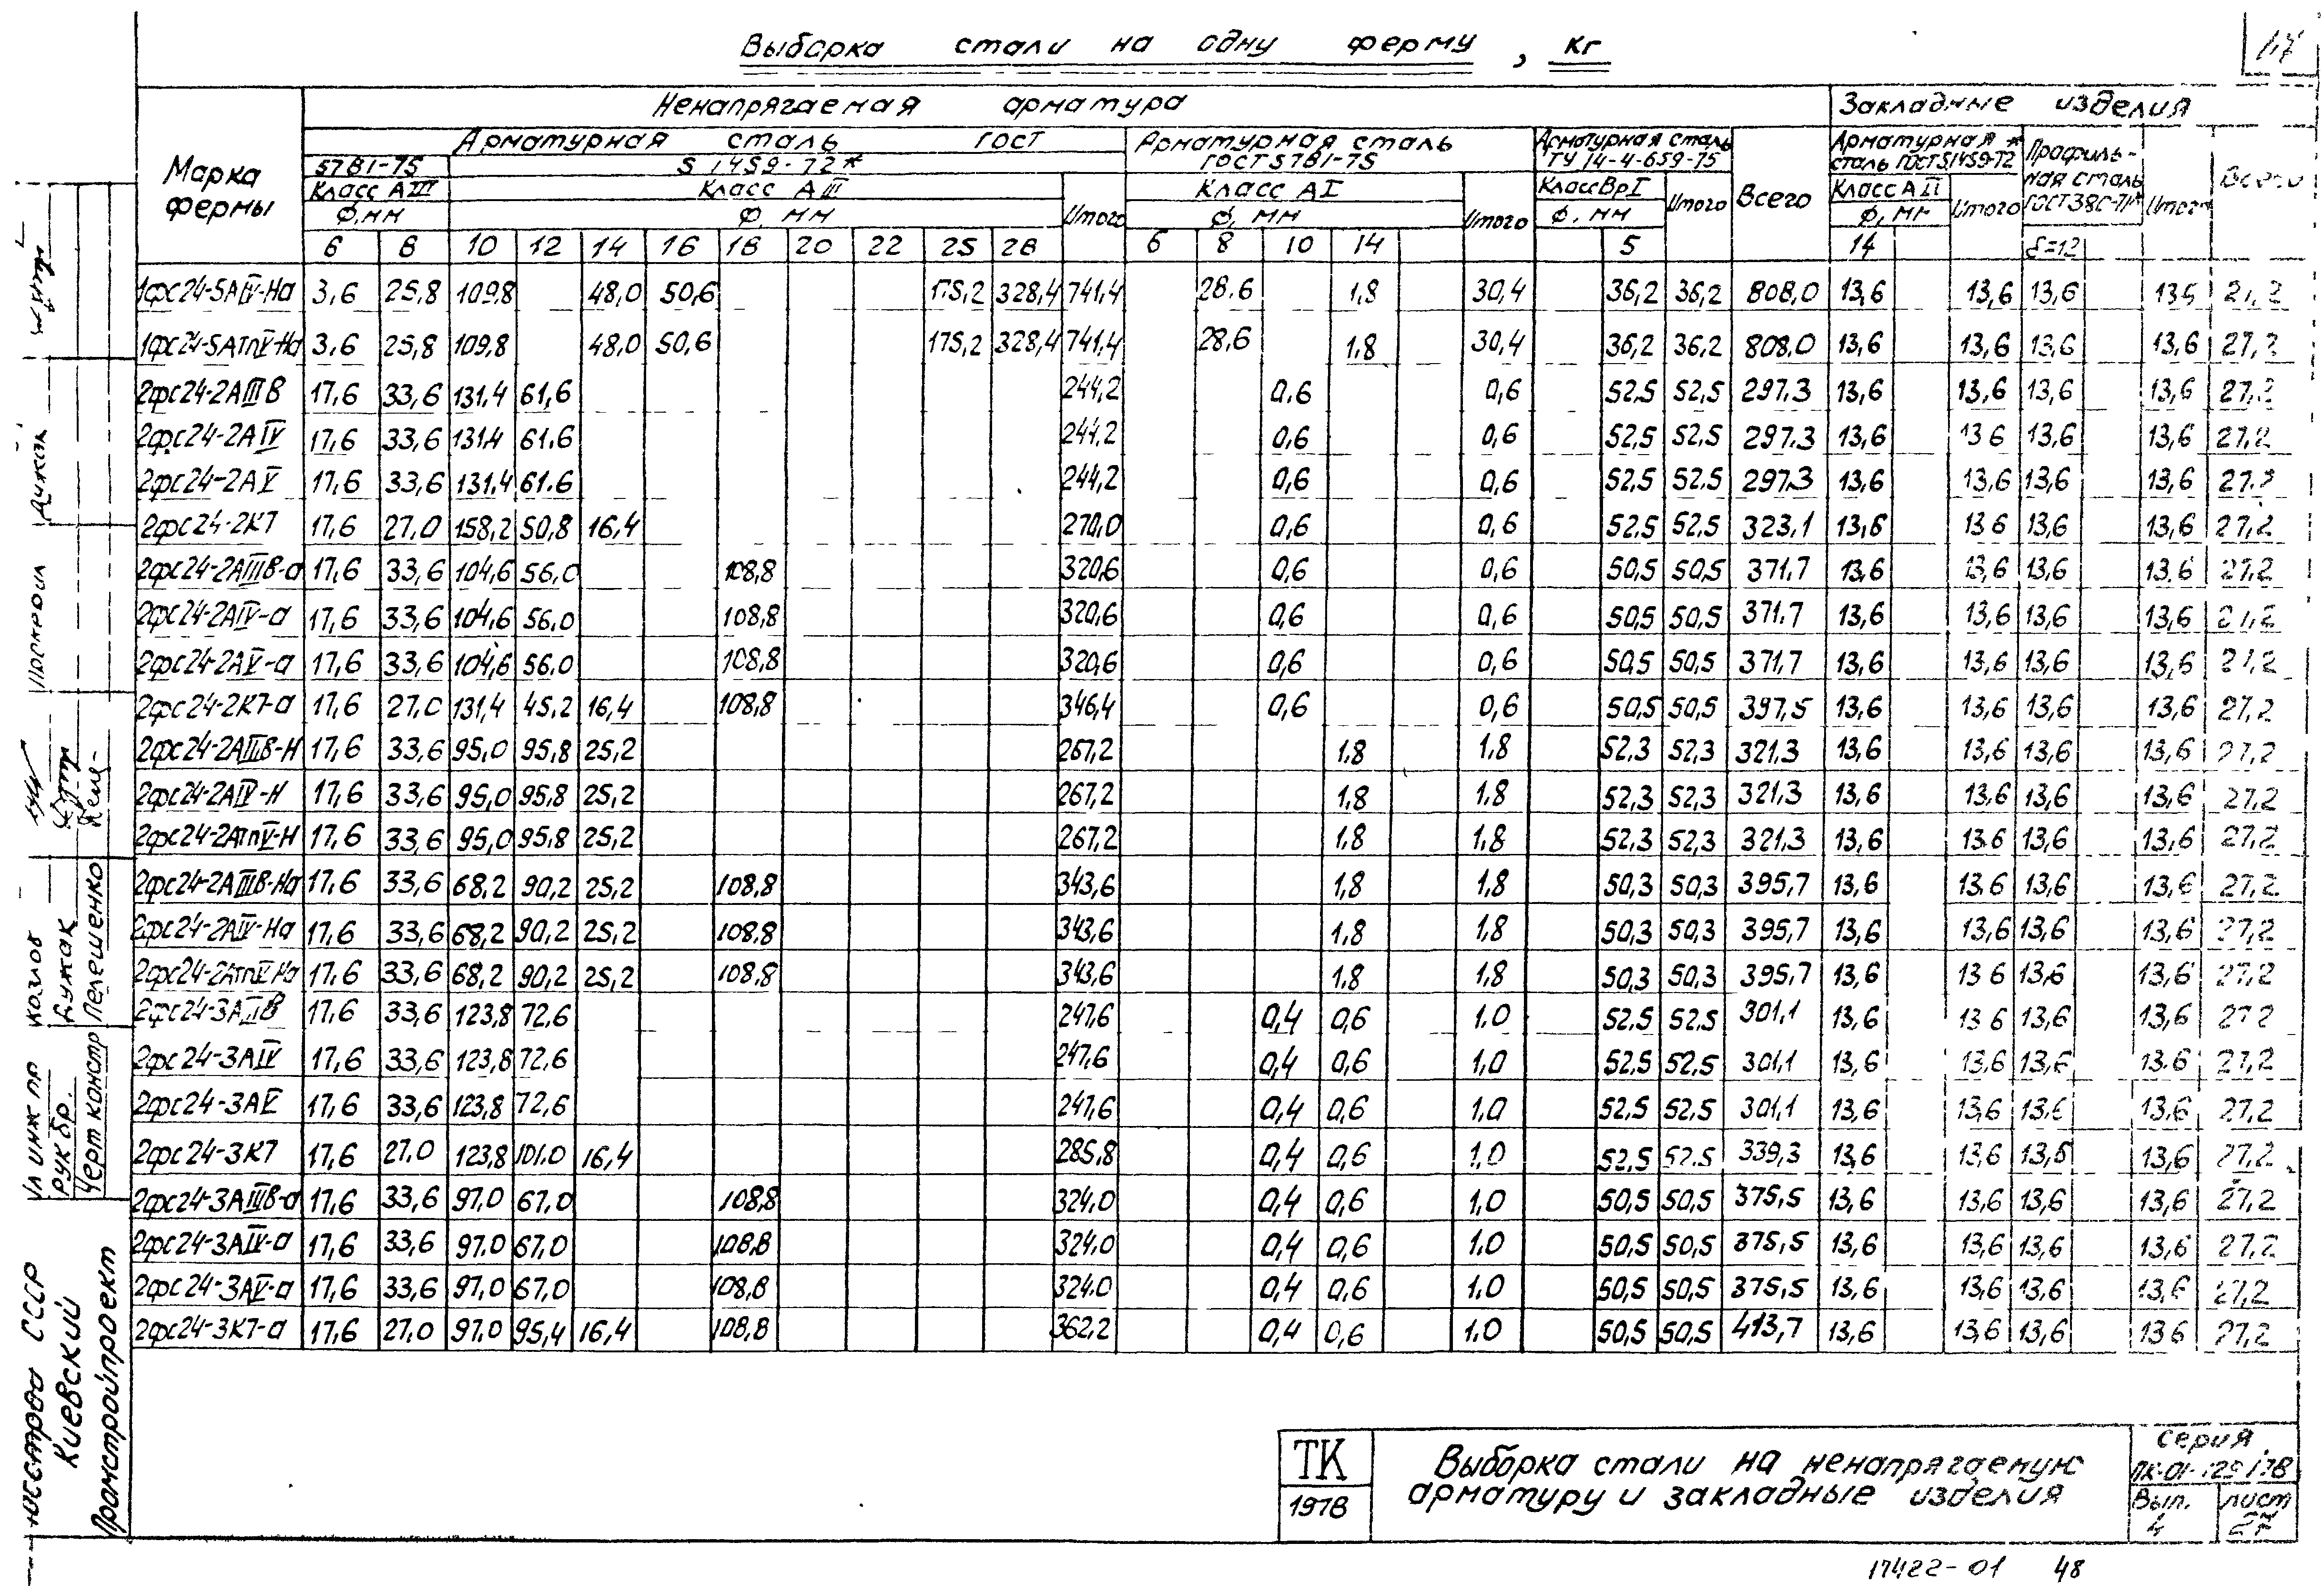 Выборка стали на одну ферму, кг
17
Марка фермы
Ненапрягаемая арматура
Закладные изделия
Арматурная сталь ГОСТ
5781-75
51459-72*
Класс АIII
Класс АIII
ф, мм
ф, мм
Итого
Арматурная сталь ГОСТ 5781-75
Класс АI
ф, мм
Итого
Арматурная сталь ТУ 14-4-659-75
Класс ВрI
ф, мм
Итого
Всего
Арматурная сталь ГОСТ 51459-72*
Класс АII
ф, мм
Итого
Профильная сталь ГОСТ 380-71*
Итого
Всего
6 8 10 12 14 16 18 20 22 25 28 6 8 10 14 5 14 δ=12
1фс24-5АIV-На 3,6 25,8 109,8 48,0 50,6 175,2 328,4 741,4 28,6 1,8 30,4 36,2 36,2 808,0 13,6 13,6 13,6 13,6 27,2
1фс24-5АтпV-На 3,6 25,8 109,8 48,0 50,6 175,2 328,4 741,4 28,6 1,8 30,4 36,2 36,2 808,0 13,6 13,6 13,6 13,6 27,2
2фс24-2АIIIВ 17,6 33,6 131,4 61,6 244,2 0,6 0,6 52,5 52,5 297,3 13,6 13,6 13,6 13,6 27,2
2фс24-2АIV 17,6 33,6 131,4 61,6 244,2 0,6 0,6 52,5 52,5 297,3 13,6 13,6 13,6 13,6 27,2
2фс24-2АV 17,6 33,6 131,4 61,6 244,2 0,6 0,6 52,5 52,5 297,3 13,6 13,6 13,6 13,6 27,2
2фс24-2К7 17,6 27,0 158,2 50,8 16,4 270,0 0,6 0,6 52,5 52,5 323,1 13,6 13,6 13,6 13,6 27,2
2фс24-2АIIIВ-а 17,6 33,6 104,6 56,0 108,8 320,6 0,6 0,6 50,5 50,5 371,7 13,6 13,6 13,6 13,6 27,2
2фс24-2АIV-а 17,6 33,6 104,6 56,0 108,8 320,6 0,6 0,6 50,5 50,5 371,7 13,6 13,6 13,6 13,6 27,2
2фс24-2АV-а 17,6 33,6 104,6 56,0 108,8 320,6 0,6 0,6 50,5 50,5 371,7 13,6 13,6 13,6 13,6 27,2
2фс24-2К7-а 17,6 27,0 131,4 45,2 16,4 108,8 346,4 0,6 0,6 50,5 50,5 397,5 13,6 13,6 13,6 13,6 27,2
2фс24-2АIIIВ-Н 17,6 33,6 95,0 95,8 25,2 267,2 1,8 1,8 52,3 52,3 321,3 13,6 13,6 13,6 13,6 27,2
2фс24-2АIV-Н 17,6 33,6 95,0 95,8 25,2 267,2 1,8 1,8 52,3 52,3 321,3 13,6 13,6 13,6 13,6 27,2
2фс24-2АтпV-Н 17,6 33,6 95,0 95,8 25,2 267,2 1,8 1,8 52,3 52,3 321,3 13,6 13,6 13,6 13,6 27,2
2фс24-2АIIIВ-На 17,6 33,6 68,2 90,2 25,2 108,8 343,6 1,8 1,8 50,3 50,3 395,7 13,6 13,6 13,6 13,6 27,2
2фс24-2АIV-На 17,6 33,6 68,2 90,2 25,2 108,8 343,6 1,8 1,8 50,3 50,3 395,7 13,6 13,6 13,6 13,6 27,2
2фс24-2АтпV-На 17,6 33,6 68,2 90,2 25,2 108,8 343,6 1,8 1,8 50,3 50,3 395,7 13,6 13,6 13,6 13,6 27,2
2фс24-3АIIIВ 17,6 33,6 123,8 72,6 247,6 0,4 0,6 1,0 52,5 52,5 301,1 13,6 13,6 13,6 13,6 27,2
2фс24-3АIV 17,6 33,6 123,8 72,6 247,6 0,4 0,6 1,0 52,5 52,5 301,1 13,6 13,6 13,6 13,6 27,2
2фс24-3АV 17,6 33,6 123,8 72,6 247,6 0,4 0,6 1,0 52,5 52,5 301,1 13,6 13,6 13,6 13,6 27,2
2фс24-3К7 17,6 27,0 123,8 101,0 16,4 285,8 0,4 0,6 1,0 52,5 52,5 339,3 13,6 13,6 13,6 13,6 27,2
2фс24-3АIIIВ-а 17,6 33,6 97,0 67,0 108,8 324,0 0,4 0,6 1,0 50,5 50,5 375,5 13,6 13,6 13,6 13,6 27,2
2фс24-3АIV-а 17,6 33,6 97,0 67,0 108,8 324,0 0,4 0,6 1,0 50,5 50,5 375,5 13,6 13,6 13,6 13,6 27,2
2фс24-3АV-а 17,6 33,6 97,0 67,0 108,8 324,0 0,4 0,6 1,0 50,5 50,5 375,5 13,6 13,6 13,6 13,6 27,2
2фс24-3К7-а 17,6 27,0 97,0 95,4 16,4 108,8 362,2 0,4 0,6 1,0 50,5 50,5 413,7 13,6 13,6 13,6 13,6 27,2
Дужак
Козлов
Дужак
Пелешенко
рук бр.
Черт констр
СССР
Киевский
Промстройпроект
ТК
1978
Выборка стали на ненапрягаемую
арматуру и закладные изделия
серия
ПК-01-129/78
Вып. 4
лист
17422-01 48